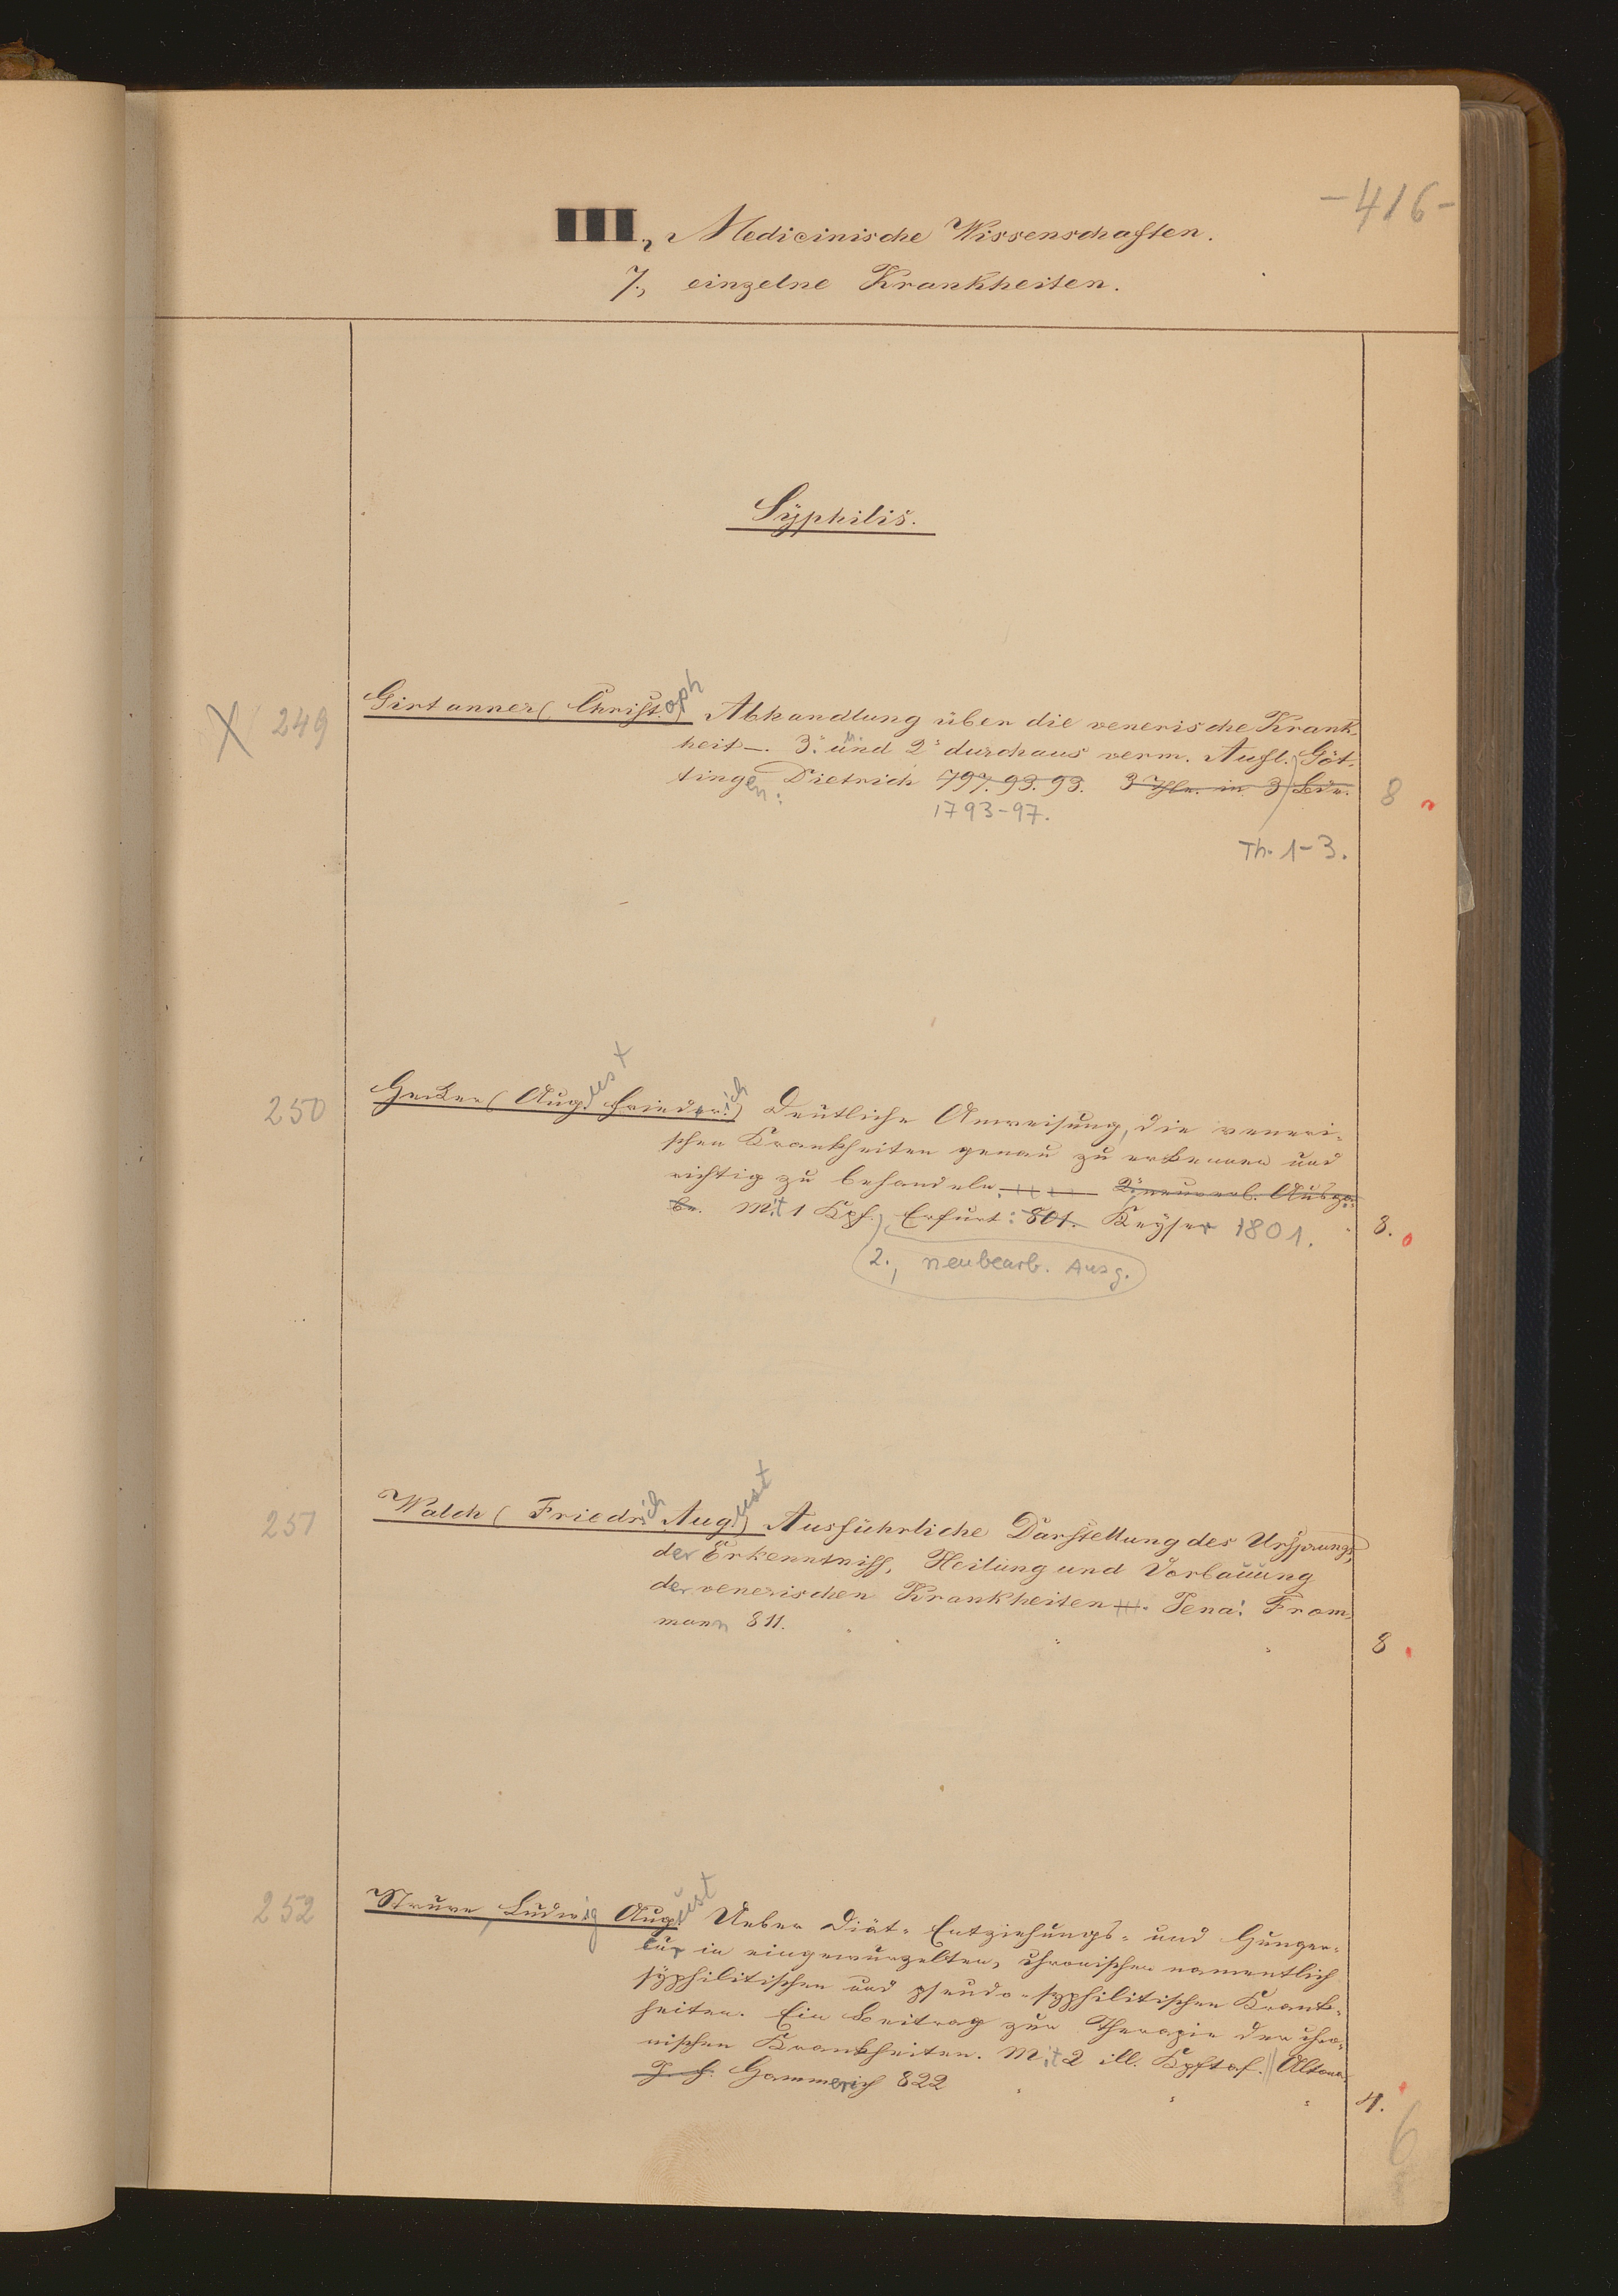 -416-
III, Medicinische Wissenschaften.
7., einzelne Krankheiten.
Syphilis.
X 249
Girtanner (Christoph) Abhandlung über die venerische Krank-
heit —. 3. und 2. durchaus verm. Aufl. Göt-
tingen: Dietrich 797. 93. 93. 3 Thle. in 3 Bde. 8
1793-97.
Th. 1-3.
250
Hecker (August Friedrich) Deutliche Anweisung, die veneri-
schen Krankheiten genau zu erkennen und
richtig zu behandeln. 2. neuverb. Ausga-
be. Mit 1 Kpf. Erfurt: 801. Keyser 1801. 8.
2., neubearb. Ausg.
251
Walch (Friedrich August) Ausführliche Darstellung des Ursprungs,
der Erkenntniss, Heilung und Vorbauung
der venerischen Krankheiten. Jena: From-
mann 811. 8
252
Struve, Ludwig August Ueber Diät- Entziehungs- und Hunger-
cur in eingewurzelten, chronischen namentlich
syphilitischen und pseudo-syphilitischen Krank-
heiten. Ein Beitrag zur Therapie der chro-
nischen Krankheiten. Mit 2 ill. Kpftaf. Altona
J. F. Hammerich 822 4.
6